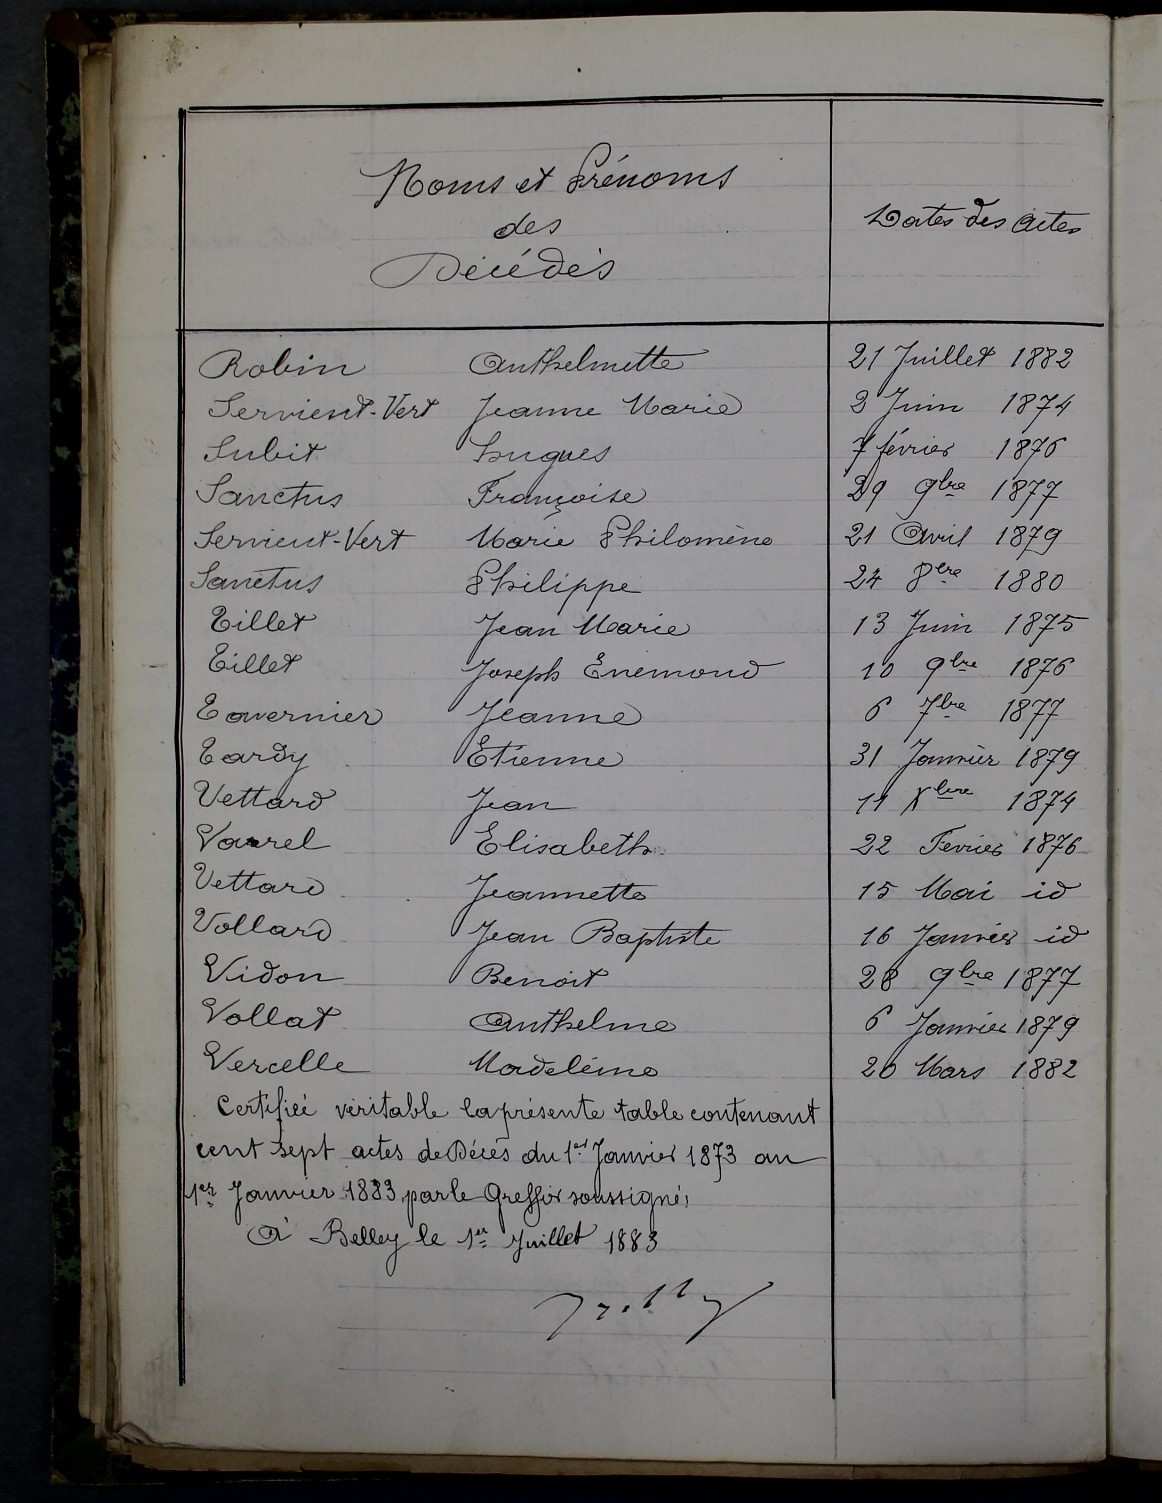 Noms et Prénoms
des
Décédés
Dates des Actes
Robin Anthelmette 21 Juillet 1882
Servient-Vert Jeanne Marie 3 Juin 1874
Subit hugues 7 février 1876
Sanctus Françoise 29 9bre 1877
Servient-Vert Marie Philomène 21 Avril 1879
Sanctus Philippe 24 8bre 1880
Tillet Jean Marie 13 Juin 1875
Tillet Joseph Enemond 10 9bre 1876
Tavernier Jeanne 6 7bre 1877
Tardy Etienne 31 Janvier 1879
Vettard Jean 11 Xbre 1874
Varrel Elisabeth 22 Fevrier 1876
Vettard Jeannette 15 Mai id
Vollard Jean Baptiste 16 Janvier id
Vidon Benoit 28 9bre 1877
Vollat Anthelme 6 Janvier 1879
Vercelle Madeleine 20 Mars 1882
Certifiée véritable la présente table contenant
cent sept actes de Décès du 1er Janvier 1873 au
1er Janvier 1883 par le Greffier soussigné,
A Belley le 1er Juillet 1883